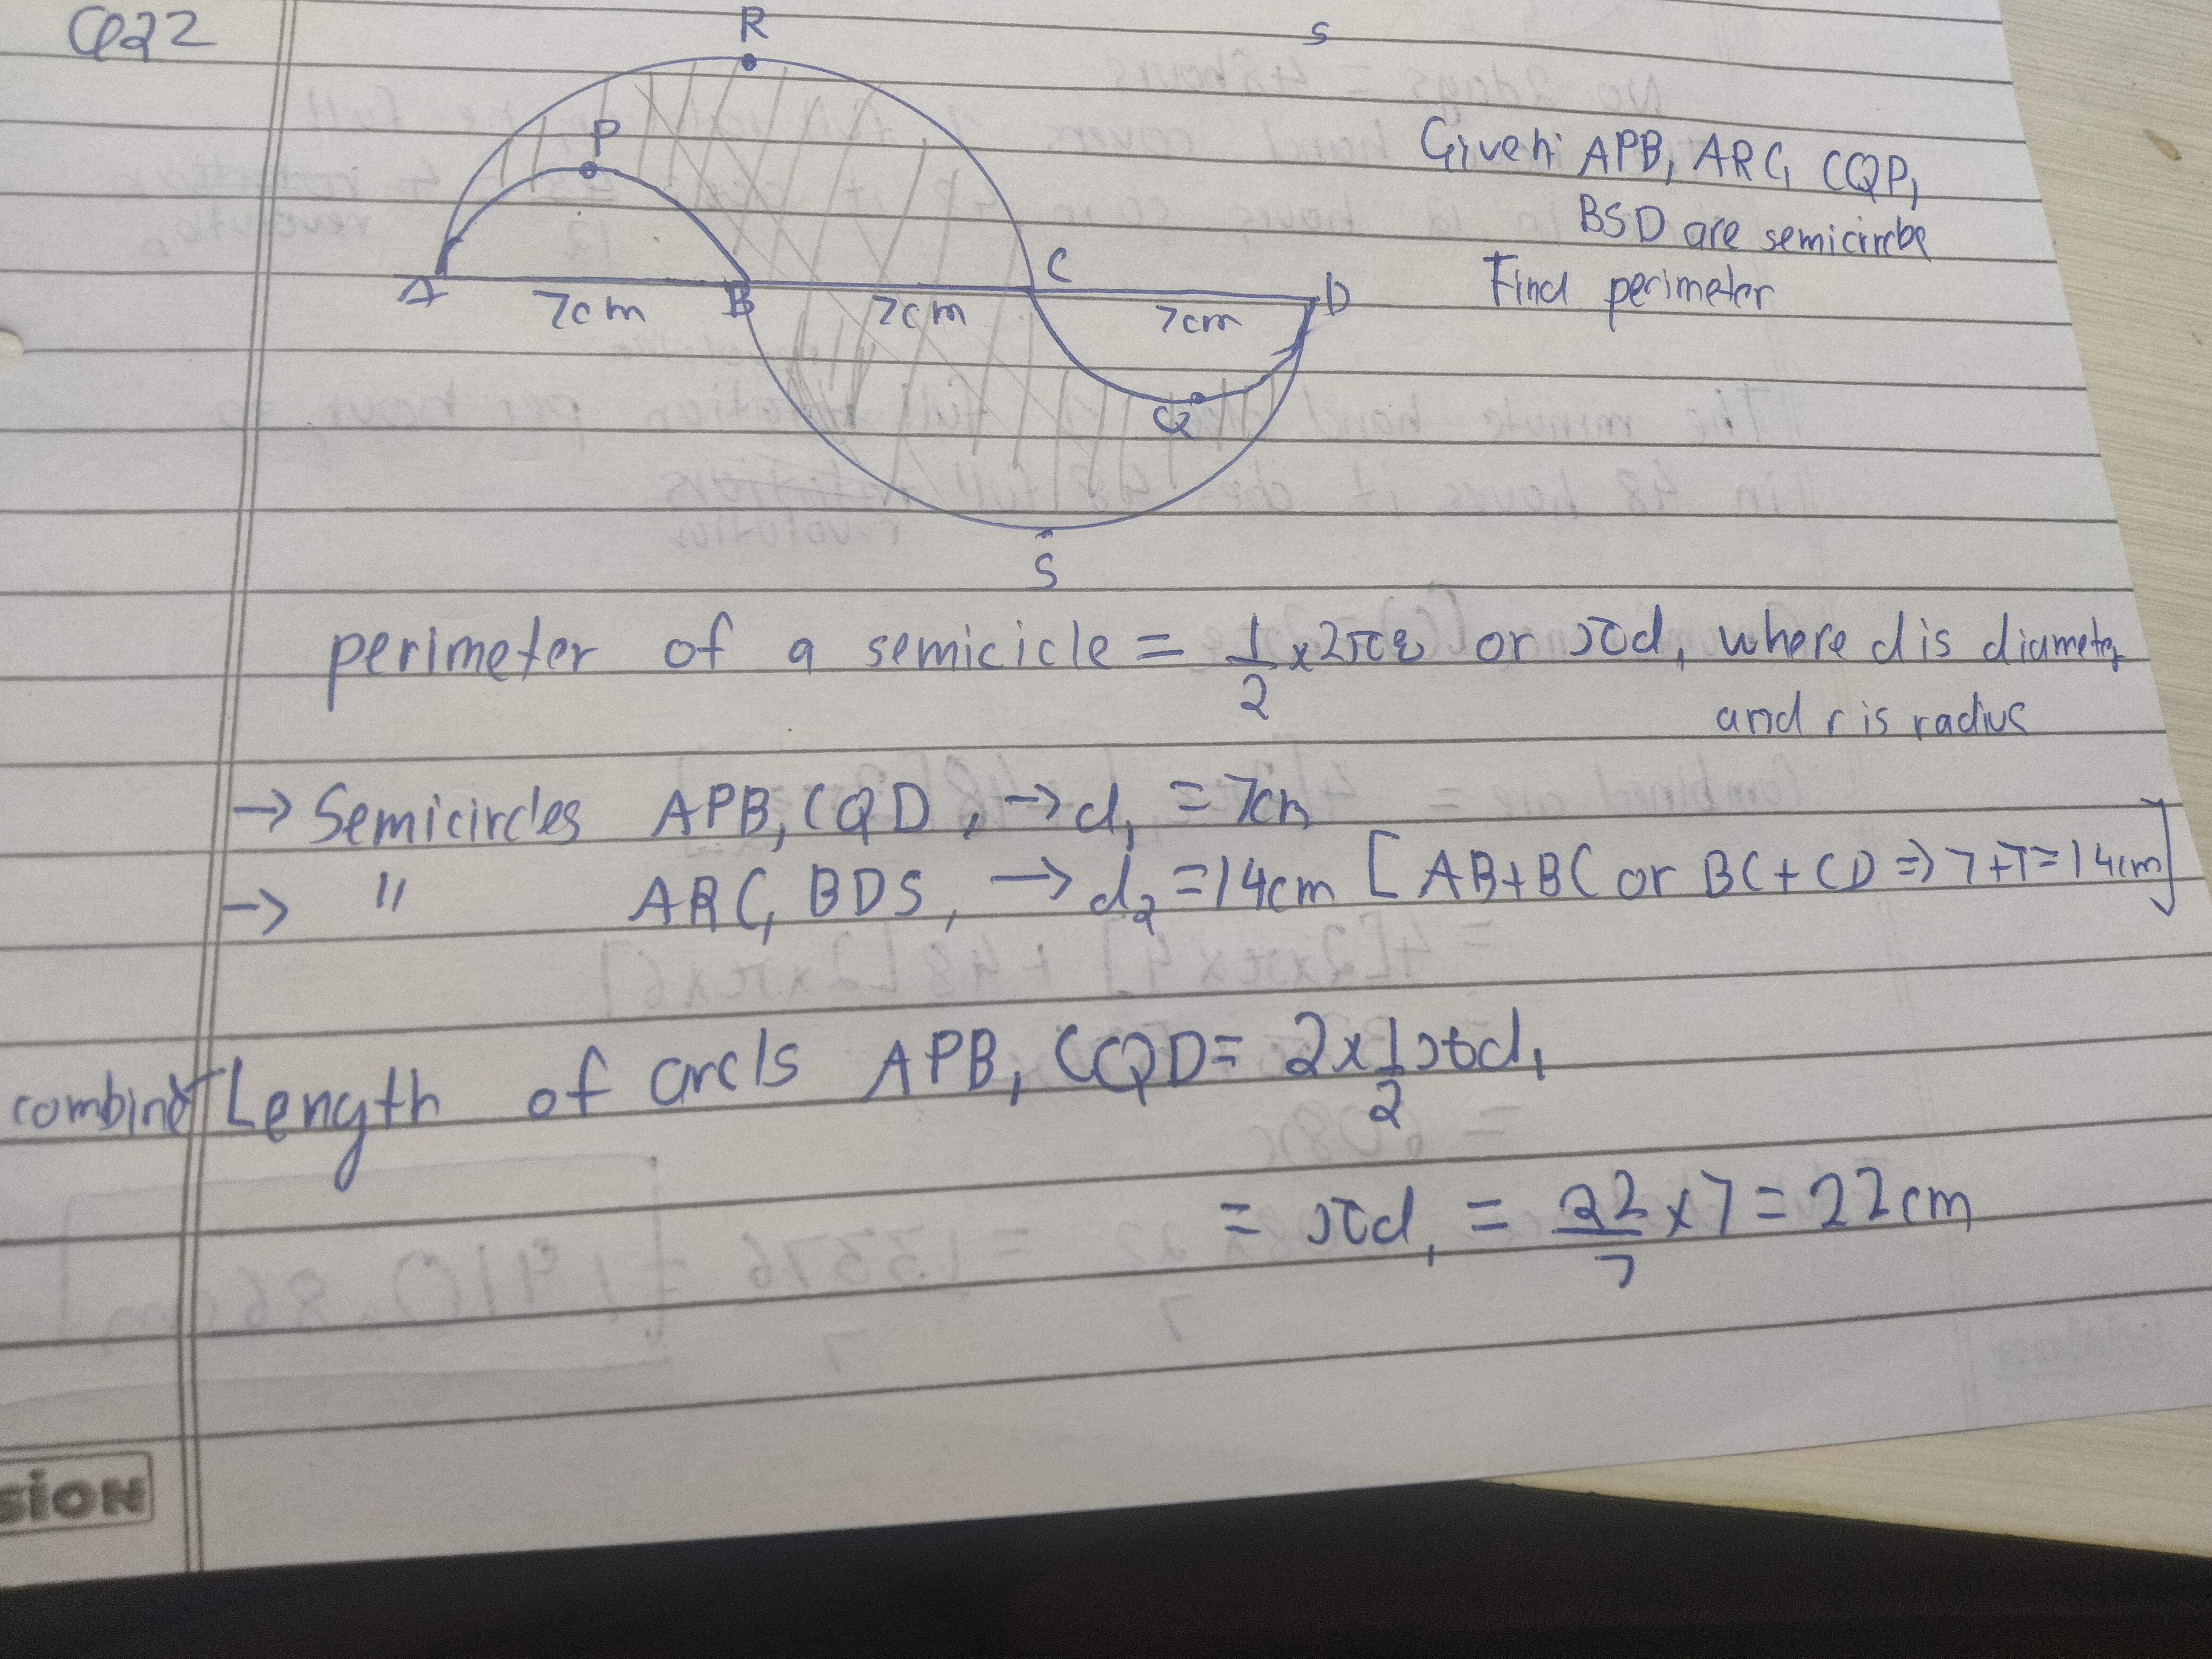 Q22
R
S
P
Given: APB, ARC, CQP,
BSD are semicircle
Find perimeter
A
7cm
B
7cm
C
7cm
D
Q
S
perimeter of a semicicle = 1/2 x 2πr or πd, where d is diameter
and r is radius
→ Semicircles APB, CQD, → d₁ = 7cm
→ " ARC, BDS, → d₂ = 14cm [AB+BC or BC+CD ⇒ 7+7=14cm]
combined Length of arcs APB, CQD = 2 x 1/2 πd₁
= πd₁ = 22/7 x 7 = 22cm
SION